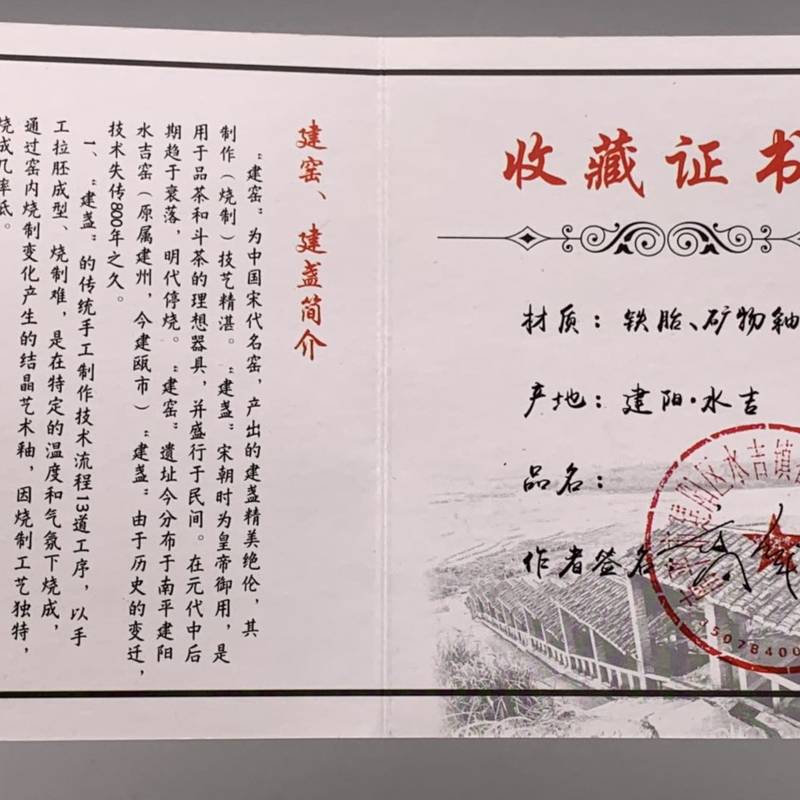 建窑、建盏简介
“建窑”为中国宋代名窑，产出的建盏精美绝伦，其
制作（烧制）技艺精湛。“建盏”宋朝时为皇帝御用，是
用于品茶和斗茶的理想器具，并盛行于民间。在元代中后
期趋于衰落，明代停烧。“建窑”遗址今分布于南平建阳
水吉窑（原属建州，今建瓯市）“建盏”由于历史的变迁，
技术失传800年之久。
一、“建盏”的传统手工制作技术流程13道工序，以手
工拉胚成型、烧制难，是在特定的温度和气氛下烧成，
通过窑内烧制变化产生的结晶艺术釉，因烧制工艺独特，
烧成几率低。
收藏证书
材质：铁胎、矿物釉
产地：建阳·水吉
品名：
作者签名：
阳区水吉镇
35078400